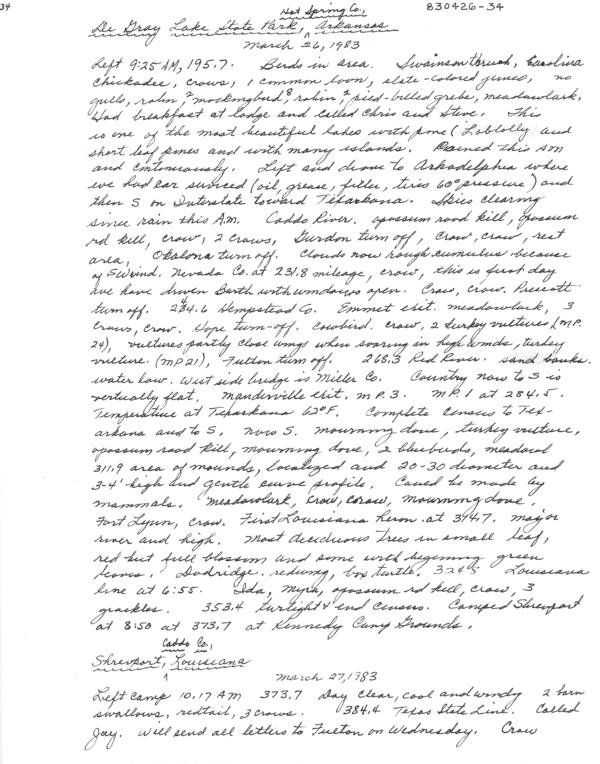 34
Hot Spring Co.,
830426-34
De Gray Lake State Park, Arkansas
March 26, 1983
Left 9:25 AM, 195.7. Birds in area. Swainson thrush, Carolina
Chickadee, crows, 1 common loon, slate-colored junco, no
gulls, robin, 2 mockingbird, 8 robin, 2 pied-billed grebe, meadowlark.
Had breakfast at lodge and called Chris and Steve. This
is one of the most beautiful lakes with pine (Loblolly and
short leaf pines and with many islands. Rained this AM
and continuously. Left and drove to Arkadelphia where
we had car serviced (oil, grease, filter, tires 60° pressure) and
then S on Interstate toward Texarkana. Skies clearing
since rain this A.M. Caddo River. opossum road kill, opossum
rd kill, crow, 2 crows, Gurdon turn off, crow, crow, rest
area, Okolona turn off. Clouds now rough cumulus because
of SW wind. Nevada Co. at 231.8 mileage, crow, this is first day
we have driven Barth with windows open. Crow, crow. Prescott
turn off. 244.6 Hempstead Co. Emmet exit. meadowlark, 3
crows, crow. Hope turn-off. Cowbird. crow, 2 turkey vultures (M.P.
24), vultures partly close wings when soaring in high winds, turkey
vulture. (MP 21), Fulton turn off. 268.3 Red River. sand banks.
water low. West side bridge is Miller Co. Country now to S is
vertually flat. Mandeville exit. M.P. 3. M.P. 1 at 284.5.
Temperature at Texarkana 62°F. Complete Census to Tex-
arkana and to S. Now S. mourning dove, turkey vulture,
opossum road kill, mourning dove, 2 bluebirds, meadowl
311.9 area of mounds, localized and 20-30 diameter and
3-4' high and gentle curve profile. Caused be made by
mammals. Meadowlark, crow, crow, mourning dove.
Fort Lynn, crow. First Louisiana heron at 314.7. major
river and high. Most deciduous trees in small leaf,
red but full blossom and some with beginning green
leaves. Dodridge. redwing, box turtle. 324.3 Louisiana
line at 6:55. Ida, Myra, opossum rd kill, crow, 3
grackles. 353.4 turtight & end census. Camped Shreveport
at 8:50 at 373.7 at Kennedy Camp Grounds.
Caddo Co.,
Shreveport, Louisiana
March 27, 1983
Left camp 10:17 AM 373.7 day clear, cool and windy 2 barn
swallows, redtail, 3 crows. 384.4 Texas State Line. Called
Jay. Will send all letters to Fulton on Wednesday. Crow